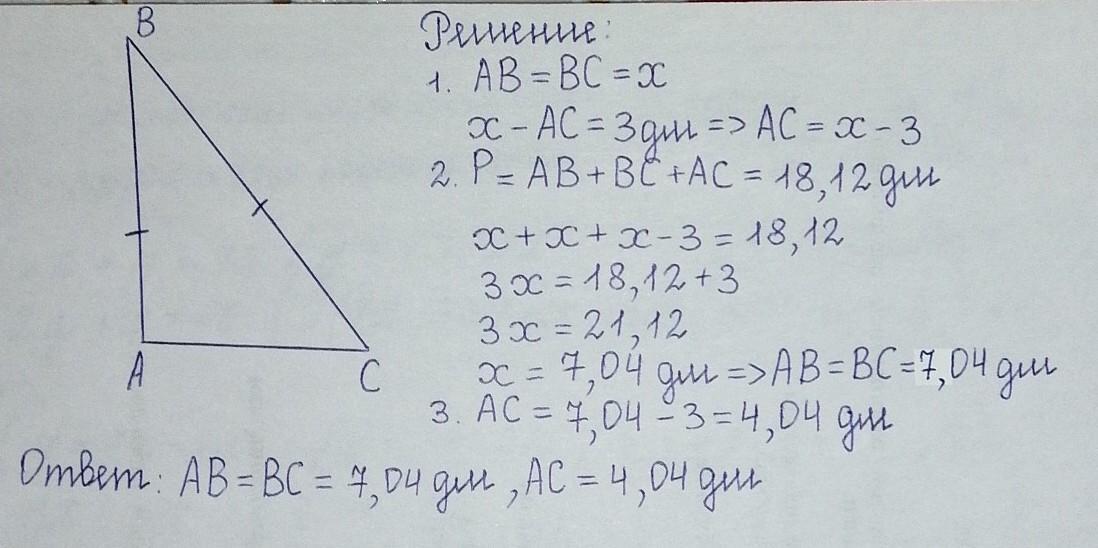 B
A
C
Решение:
1. AB = BC = x
x - AC = 3 дм => AC = x - 3
2. P = AB + BC + AC = 18,12 дм
x + x + x - 3 = 18,12
3x = 18,12 + 3
3x = 21,12
x = 7,04 дм => AB = BC = 7,04 дм
3. AC = 7,04 - 3 = 4,04 дм
Ответ: AB = BC = 7,04 дм, AC = 4,04 дм